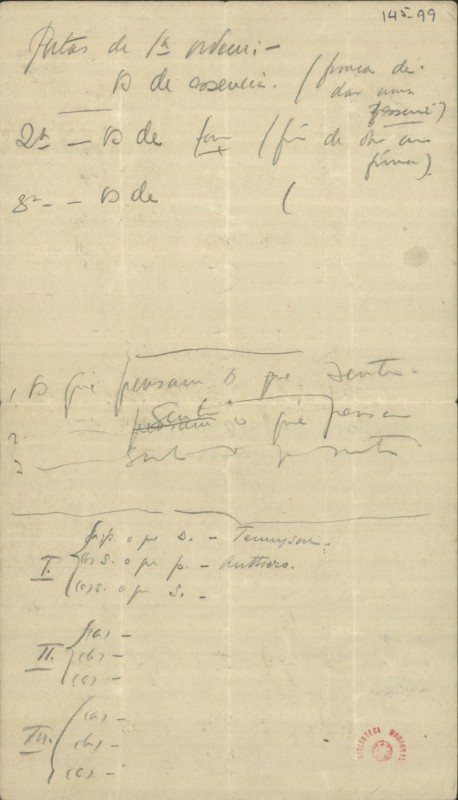 145-99
Poetas de 1ª ordem: -
os de essencia. (
dar uma
2ª - os de (fim de
3ª - os de (
1. Os que pensam o que sentem.
2. sentem
pensam o que pensam
3 sentem o que sentem
I. (a) p. o que s. - Tennyson.
(b) s. o que p. - Anthero.
(c) s. o que s. -
II. (a) -
(b) -
(c) -
III. (a) -
(b) -
(c) -
BIBLIOTECA NACIONAL